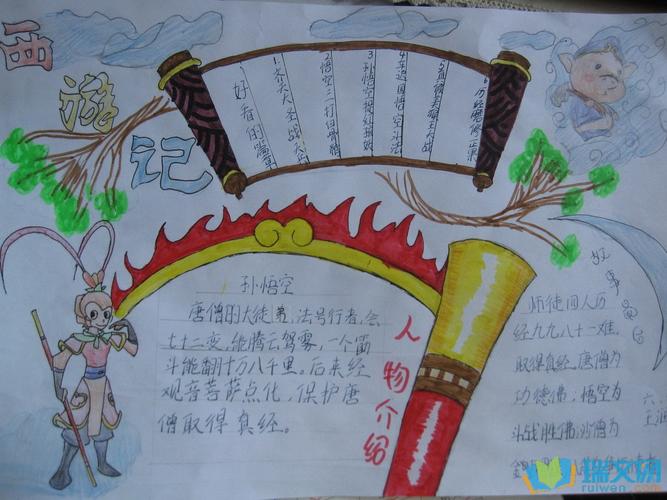 西游记
好看的篇章
1.齐天大圣战天兵
2.悟空三打白骨精
3.孙悟空
4.车迟国悟空斗法
5.真假美猴王大战
6.历经磨难
孙悟空
唐僧的大徒弟,法号行者,会
七十二变,能腾云驾雾,一个筋
斗能翻十万八千里。后来经
观音菩萨点化,保护唐
僧取得真经。
人物介绍
故事
师徒四人历
经九九八十一难,
取得真经。唐僧为
功德佛,悟空为
斗战胜佛,沙僧为
六
王
瑞文网
ruiwen.com